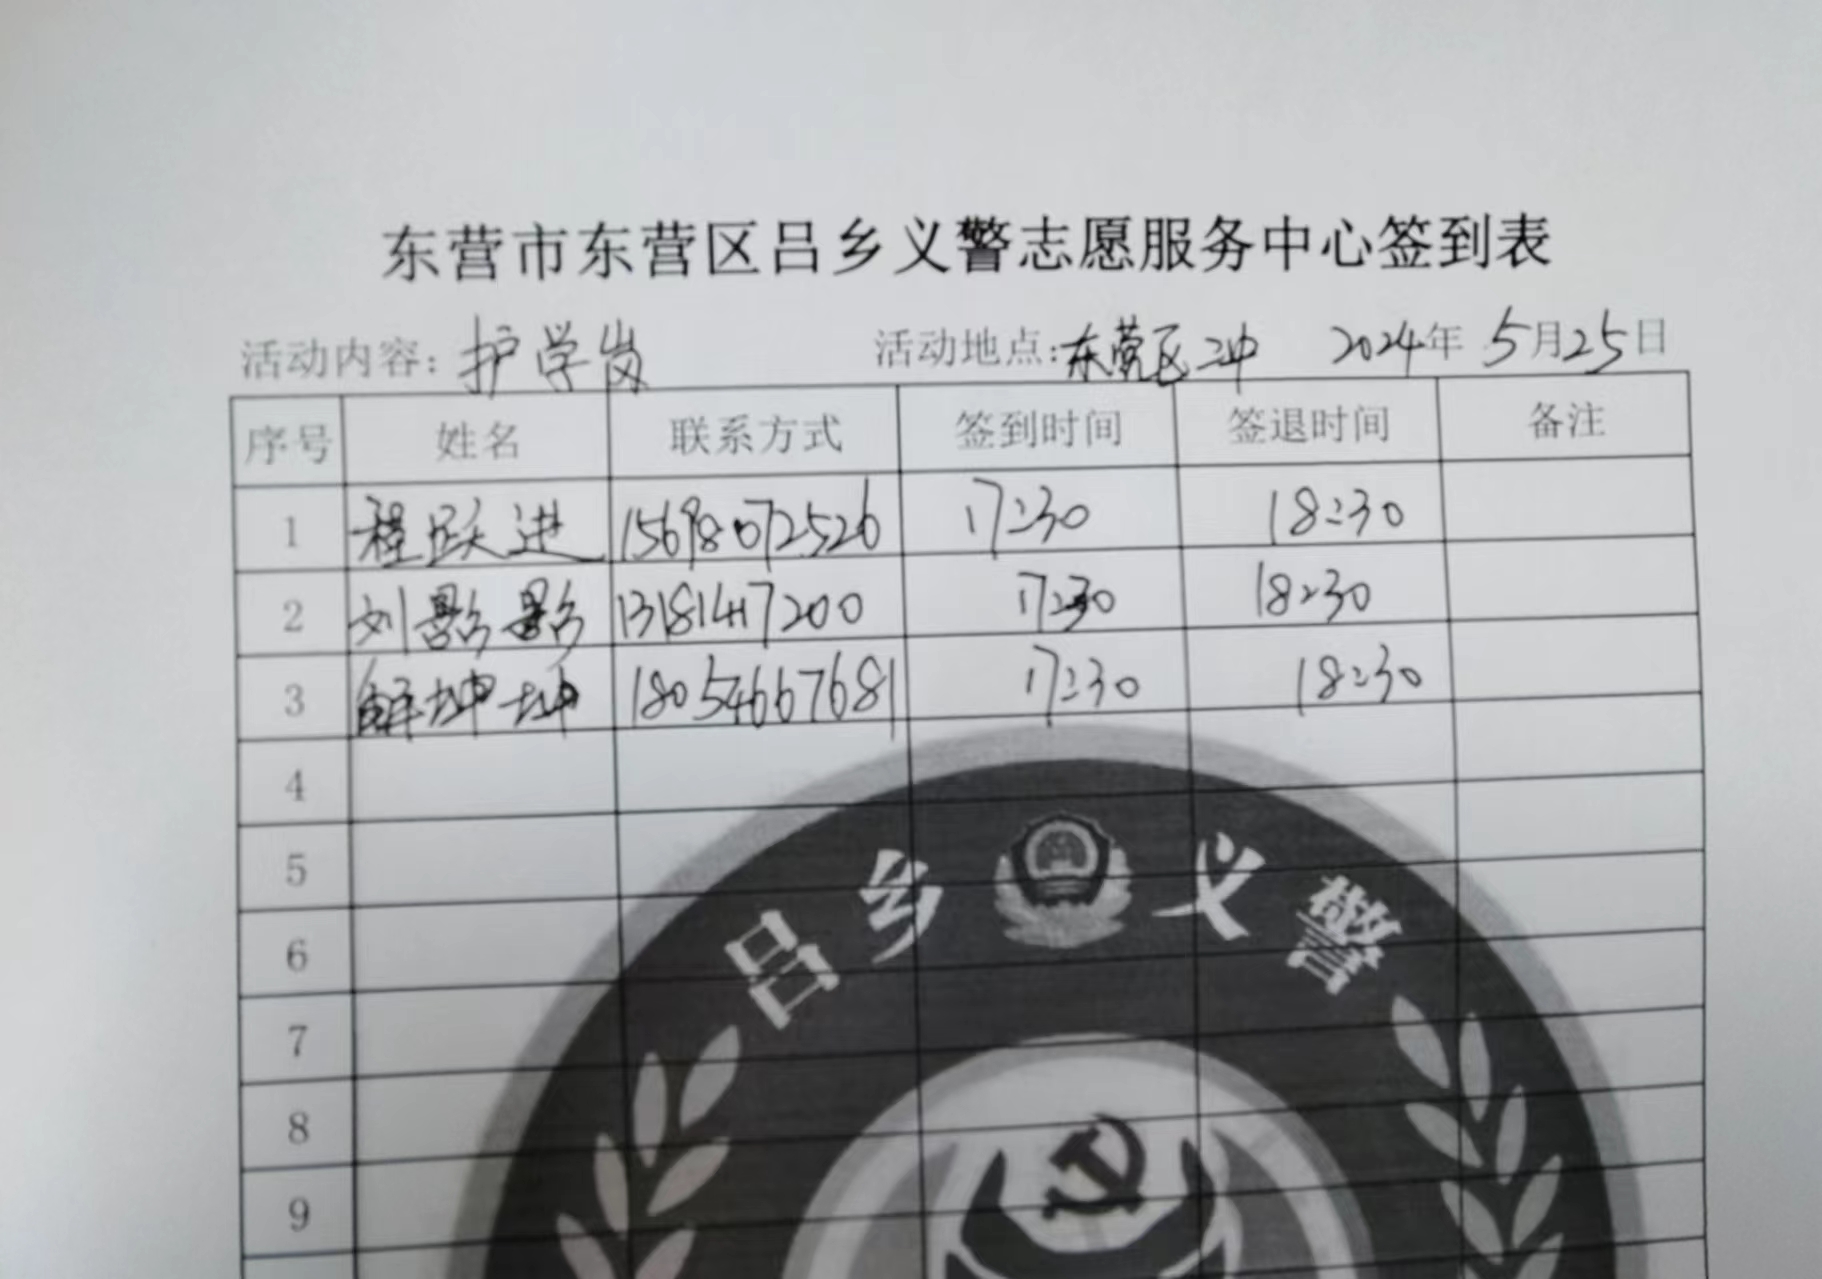 东营市东营区吕乡义警志愿服务中心签到表
活动内容：护学岗 活动地点：东营区二中 2024年5月25日
序号 姓名 联系方式 签到时间 签退时间 备注
1 程跃进 15698072526 17:30 18:30
2 刘影影 13181417200 17:30 18:30
3 解坤坤 18054667681 17:30 18:30
4
5
6
7
8
9
吕乡义警